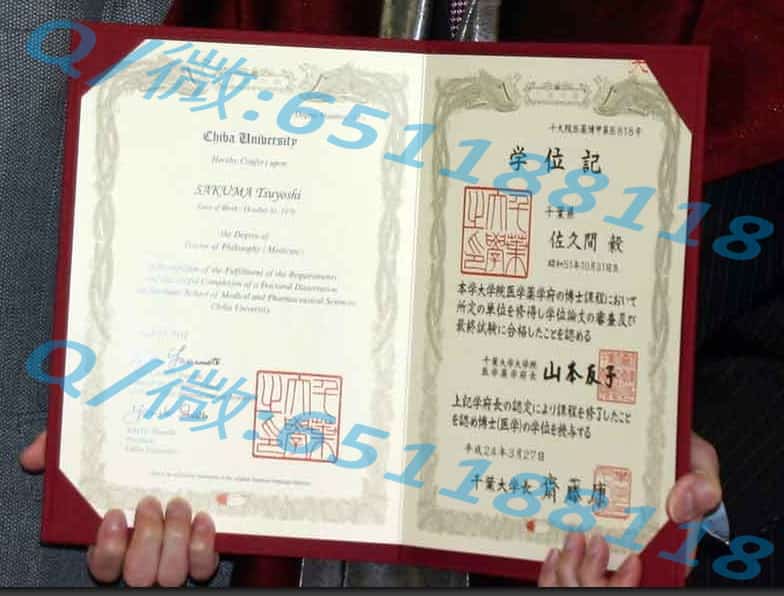 Q/微:651188118
Chiba University
Hereby Confers upon
SAKUMA Tsuyoshi
Date of Birth: October 31, 1976
the Degree of
Doctor of Philosophy (Medicine)
in Recognition of the Fulfillment of the Requirements
and Successful Completion of a Doctoral Dissertation
Graduate School of Medical and Pharmaceutical Sciences
Chiba University
President
Chiba University
千大院医薬博甲第医818号
学位記
千葉県
佐久間 毅
昭和51年10月31日生
千葉大学之印
本学大学院医学薬学府の博士課程において
所定の単位を修得し学位論文の審査及び
最終試験に合格したことを認める
千葉大学大学院
医学薬学府長 山本友子
上記学府長の認定により課程を修了したこと
を認め博士(医学)の学位を授与する
平成24年3月27日
千葉大学長 齋藤康
千葉大学之印
Q/微:651188118